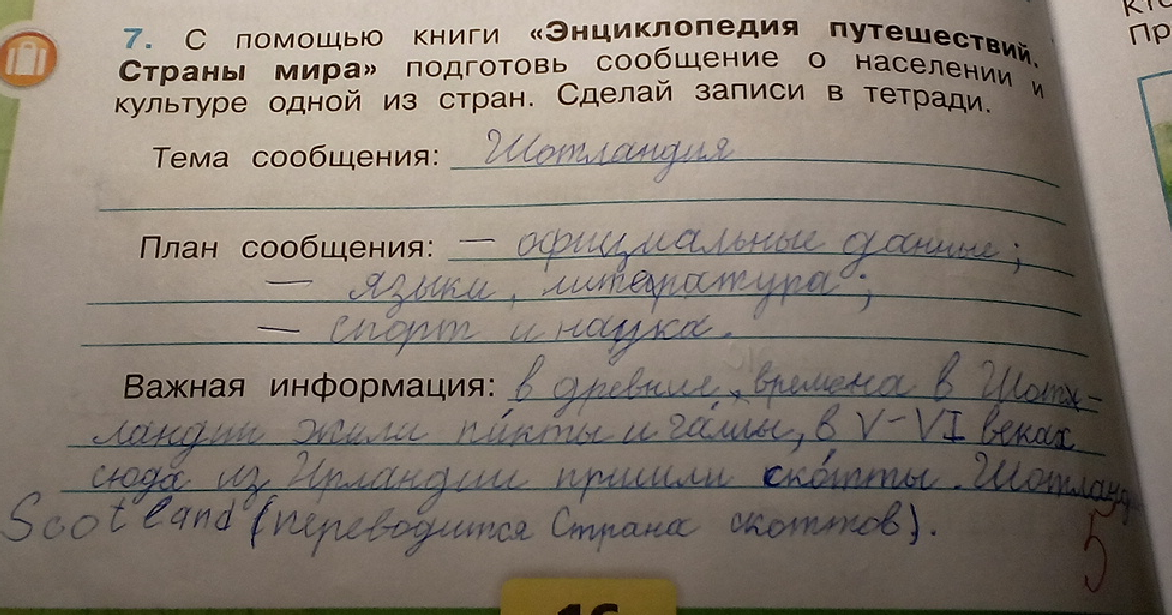 7. С помощью книги «Энциклопедия путешествий.
Страны мира» подготовь сообщение о населении и
культуре одной из стран. Сделай записи в тетради.
Тема сообщения: Шотландия
План сообщения: — официальные данные;
— языки, литература;
— спорт и наука.
Важная информация: в древние времена в Шот-
ландии жили пи́кты и га́ллы, в V-VI веках
сюда из Ирландии пришли ско́тты. Шотланд
Scotland (переводится Страна скоттов).
5
16
Пр